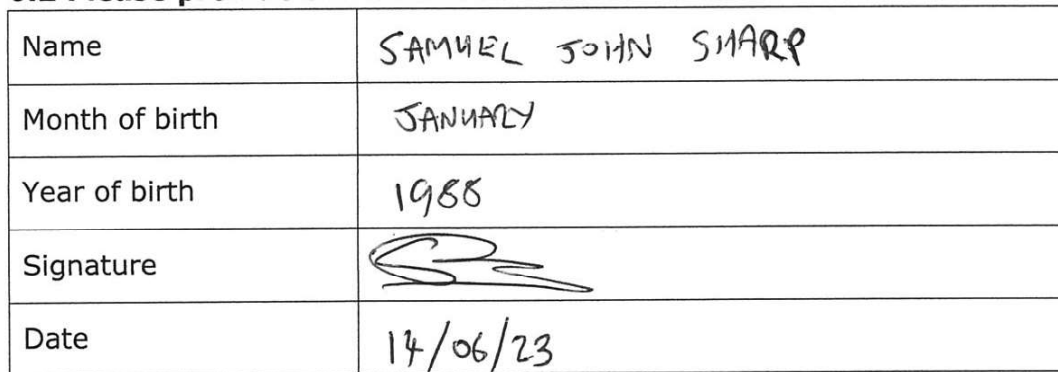 Name SAMUEL JOHN SHARP
Month of birth JANUARY
Year of birth 1988
Signature
Date 14/06/23